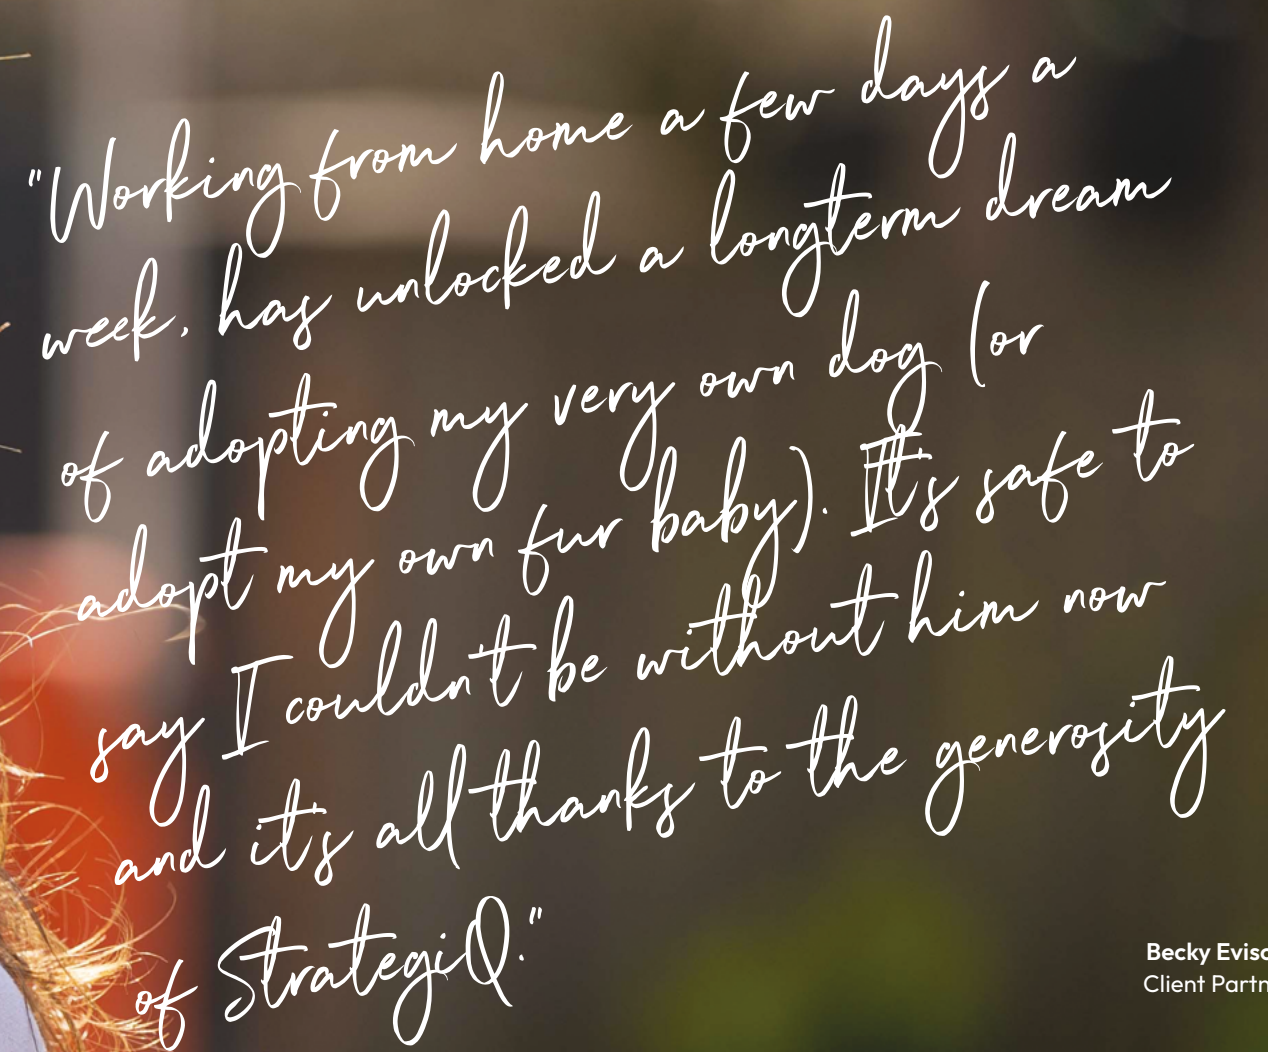 "Working from home a few days a
week, has unlocked a longterm dream
of adopting my very own dog (or
adopt my own fur baby). It's safe to
say I couldn't be without him now
and it's all thanks to the generosity
of StrategiQ."
Becky
Client